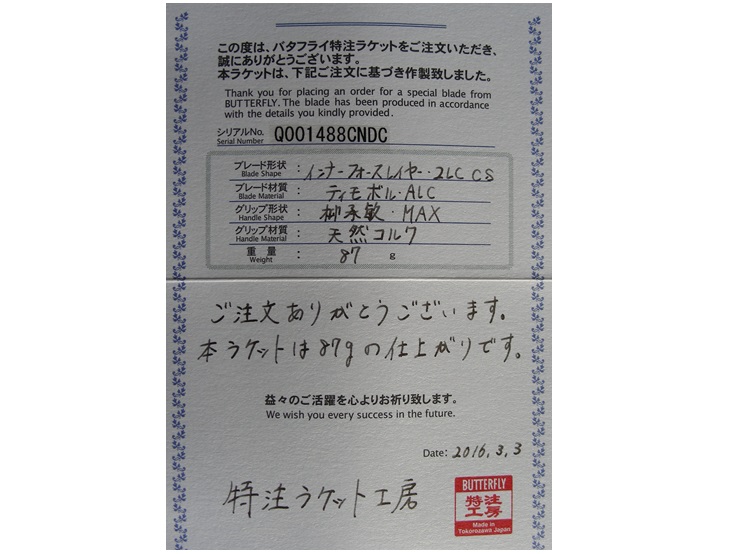 この度は、バタフライ特注ラケットをご注文いただき、
誠にありがとうございます。
本ラケットは、下記ご注文に基づき作製致しました。
Thank you for placing an order for a special blade from
BUTTERFLY. The blade has been produced in accordance
with the details you kindly provided.
シリアルNo. Q001488CNDC
Serial Number
ブレード形状 : インナーフォースレイヤー・ZLC CS
Blade Shape
ブレード材質 : ティモボル・ALC
Blade Material
グリップ形状 : 柳承敏・MAX
Handle Shape
グリップ材質 : 天然コルク
Handle Material
重量 : 87 g
Weight
ご注文ありがとうございます。
本ラケットは87gの仕上がりです。
益々のご活躍を心よりお祈り致します。
We wish you every success in the future.
Date: 2016.3.3
特注ラケット工房
BUTTERFLY
特注
工房
Made in
Tokorozawa Japan